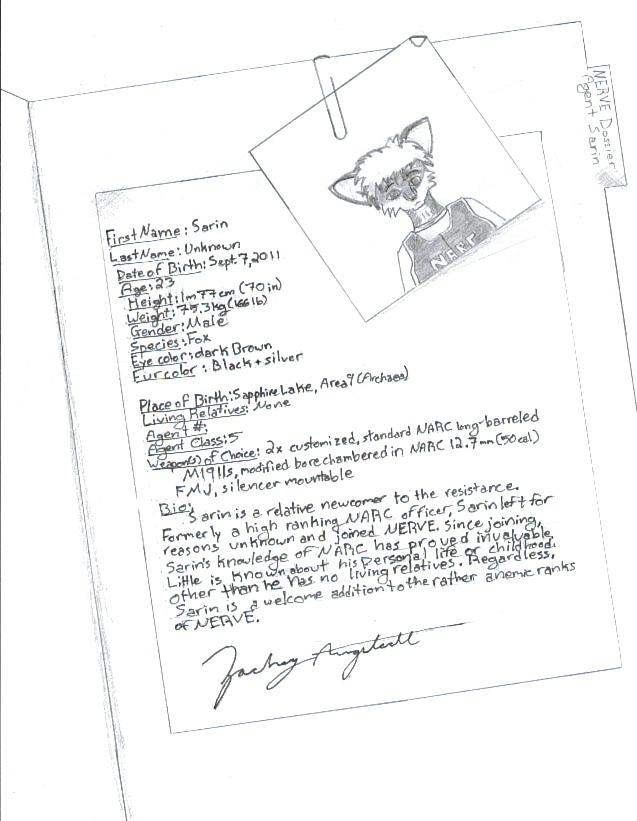 NERVE Dossier
Agent Sarin
NARC
First Name: Sarin
Last Name: Unknown
Date of Birth: Sept. 7, 2011
Age: 23
Height: 1m 77cm (70 in)
Weight: 75.3kg (166 lb)
Gender: Male
Species: Fox
Eye color: dark Brown
Fur color: Black + silver
Place of Birth: Sapphire Lake, Area 9 (Archaea)
Living Relatives: None
Agent #:
Agent Class: 5
Weapon(s) of Choice: 2x customized, standard NARC long-barreled
M1911s, modified bore chambered in NARC 12.7mm (50cal)
FMJ, silencer mountable
Bio:
Sarin is a relative newcomer to the resistance.
Formerly a high ranking NARC officer, Sarin left for
reasons unknown and joined NERVE. Since joining,
Sarin's knowledge of NARC has proved invaluable.
Little is known about his personal life or childhood.
other than he has no living relatives. Regardless,
Sarin is a welcome addition to the rather anemic ranks
of NERVE.